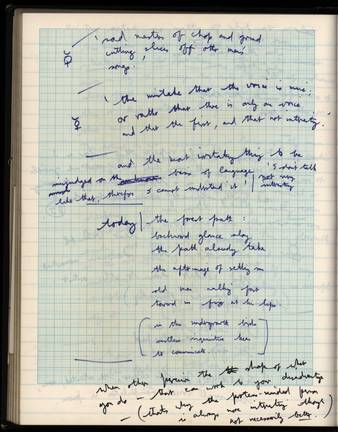 'sad masters of chop and grind
cutting slices off other men's
songs.'
'the mistake that the voice is mine;
or rather that there is only one voice
and that the first, and that not interesting.'
and the most irritating thing to be
misjudged on the basis of language 'I don't talk
like that, therefore I cannot understand it' not very interesting
today the forest path:
backward glance along
the path already take
the afterimage of
old man walking past
toward in at the lips.
in the undergrowth birds
to communicate.
when others perceive the shape of what
you do – that can work to your disadvantage
– (that's why the protean-minded person
is always more interesting though
not necessarily better.)